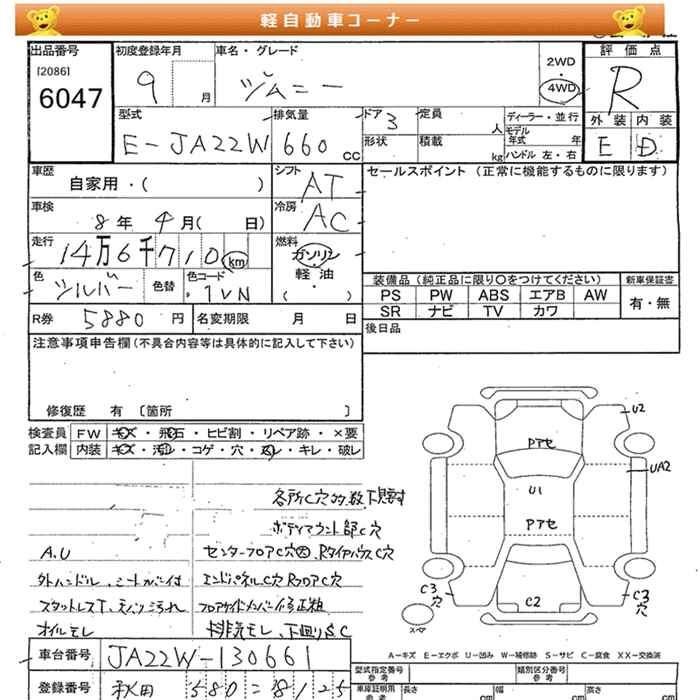 軽自動車コーナー
出品番号 初度登録年月 車名・グレード 評価点
[2086]
6047
9 月 ジムニー
2WD
・
4WD
R
外装 内装
E D
型式 排気量 ドア 定員 ディーラー・並行
E-JA22W 660 cc 3 人
モデル年式 年
形状 積載 kg ハンドル 左・右
車歴 シフト セールスポイント (正常に機能するものに限ります)
自家用・( ) AT
車検 冷房
8年 4月( 日) AC
走行 燃料
14万6千710km ガソリン
軽油
( )
色 色替 色コード
シルバー 1VN
装備品 (純正品に限り〇をつけてください) 新車保証書
PS PW ABS エアB AW 有・無
SR ナビ TV カワ
R券 5880円 名変期限 月 日 後日品
注意事項申告欄 (不具合内容等は具体的に記入して下さい)
修復歴 有 〔箇所 〕
検査員 FW キズ・飛石・ヒビ割・リペア跡・×要
記入欄 内装 キズ・汚レ・コゲ・穴・スレ・キレ・破レ
各所C穴的数
ボディマウント部C穴
A.U センターフロアC穴大、RタイヤハウスC穴
外ハンドル、シートカバー付 エンドパネルC穴RフロアC穴
スタットレスT、天バリ汚れ フロアサイドメンバー修正粗
オイルモレ 排気モレ、下回りS.C
U2
Pアセ
UA2
U1
Pアセ
C3
穴
C2
C3
穴
スペア
A-キズ E-エクボ U-凹み W-補修跡 S-サビ C-腐食 XX-交換済
車台番号 JA22W-130661
型式指定番号 参考 類別区分番号 参考
登録番号 秋田 580 = 8125
車庫証明用 参考 長さ cm 幅 cm 高さ cm